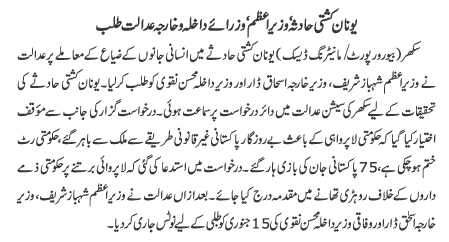 یونان کشتی حادثہ‘ وزیراعظم‘ وزرائے داخلہ و خارجہ عدالت طلب
سکھر (بیورو رپورٹ/ مانیٹرنگ ڈیسک) یونان کشتی حادثے میں انسانی جانوں کے ضیاع کے معاملے پر عدالت
نے وزیراعظم شہباز شریف، وزیر خارجہ اسحاق ڈار اور وزیر داخلہ محسن نقوی کو طلب کرلیا۔ یونان کشتی حادثے کی
تحقیقات کے لیے سکھر کی سیشن عدالت میں دائر درخواست پر سماعت ہوئی۔ درخواست گزار کی جانب سے مؤقف
اختیار کیا گیا کہ حکومتی لاپرواہی کے باعث بے روزگار پاکستانی غیر قانونی طریقے سے ملک سے باہر گئے، حکومتی رٹ
ختم ہوچکی ہے، 75 پاکستانی جان کی بازی ہار گئے۔ درخواست میں استدعا کی گئی کہ لاپروائی برتنے پر حکومتی ذمے
داروں کے خلاف روہڑی تھانے میں مقدمہ درج کیا جائے۔ بعد ازاں عدالت نے وزیراعظم شہباز شریف، وزیر
خارجہ اسحٰق ڈار اور وفاقی وزیر داخلہ محسن نقوی کی 15 جنوری کو طلبی کے لیے نوٹس جاری کردیا۔